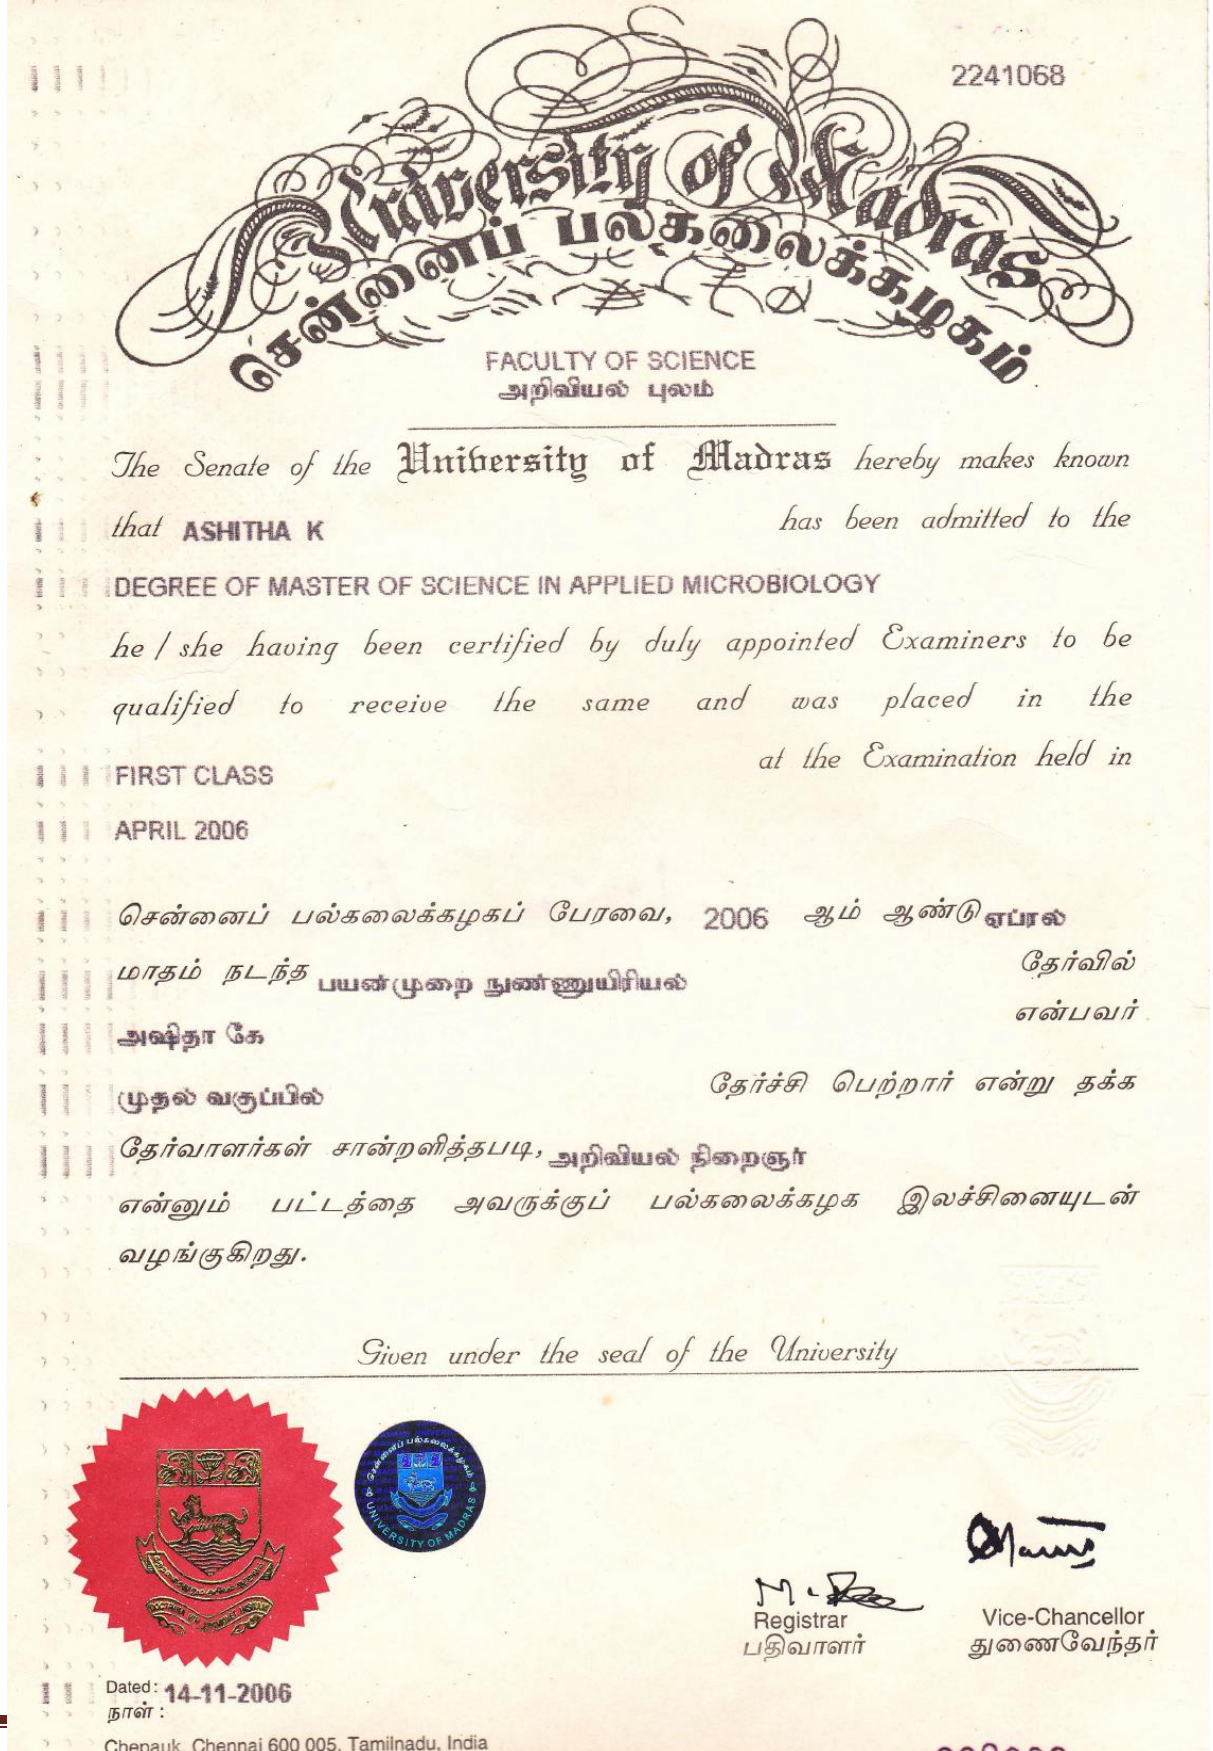 2241068
University of Madras
சென்னைப் பல்கலைக்கழகம்
FACULTY OF SCIENCE
அறிவியல் புலம்
The Senate of the University of Madras hereby makes known
that ASHITHA K has been admitted to the
DEGREE OF MASTER OF SCIENCE IN APPLIED MICROBIOLOGY
he / she having been certified by duly appointed Examiners to be
qualified to receive the same and was placed in the
FIRST CLASS at the Examination held in
APRIL 2006
சென்னைப் பல்கலைக்கழகப் பேரவை, 2006 ஆம் ஆண்டு ஏப்ரல்
மாதம் நடந்த பயன்முறை நுண்ணுயிரியல் தேர்வில்
அஷிதா கே என்பவர்
முதல் வகுப்பில் தேர்ச்சி பெற்றார் என்று தக்க
தேர்வாளர்கள் சான்றளித்தபடி, அறிவியல் நிறைஞர்
என்னும் பட்டத்தை அவருக்குப் பல்கலைக்கழக இலச்சினையுடன்
வழங்குகிறது.
Given under the seal of the University
சென்னைப் பல்கலைக்கழகம்
UNIVERSITY OF MADRAS
Registrar
பதிவாளர்
Vice-Chancellor
துணைவேந்தர்
Dated: 14-11-2006
நாள் :
Chepauk, Chennai 600 005, Tamilnadu, India